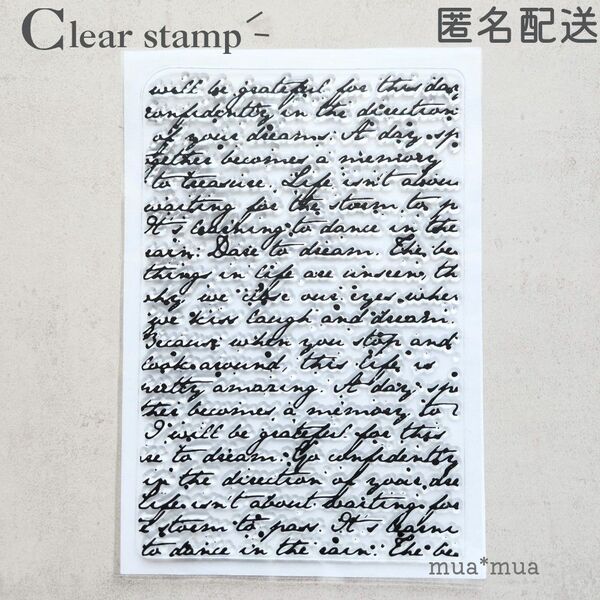 Clear stamp
匿名配送
will be grateful for this day
confidently in the direction
of your dreams. A day sp
gether becomes a memory
to treasure. Life isn't about
waiting for the storm to p
It's learning to dance in the
rain. Dare to dream. The be
things in life are unseen, th
why we close our eyes when
we kiss laugh and dream.
Because when you stop and
look around, this life is
pretty amazing. A day sp
ther becomes a memory to
I will be grateful for this
re to dream. Go confidently
in the direction of your dre
Life isn't about waiting for
e storm to pass. It's learni
to dance in the rain. The be
mua*mua